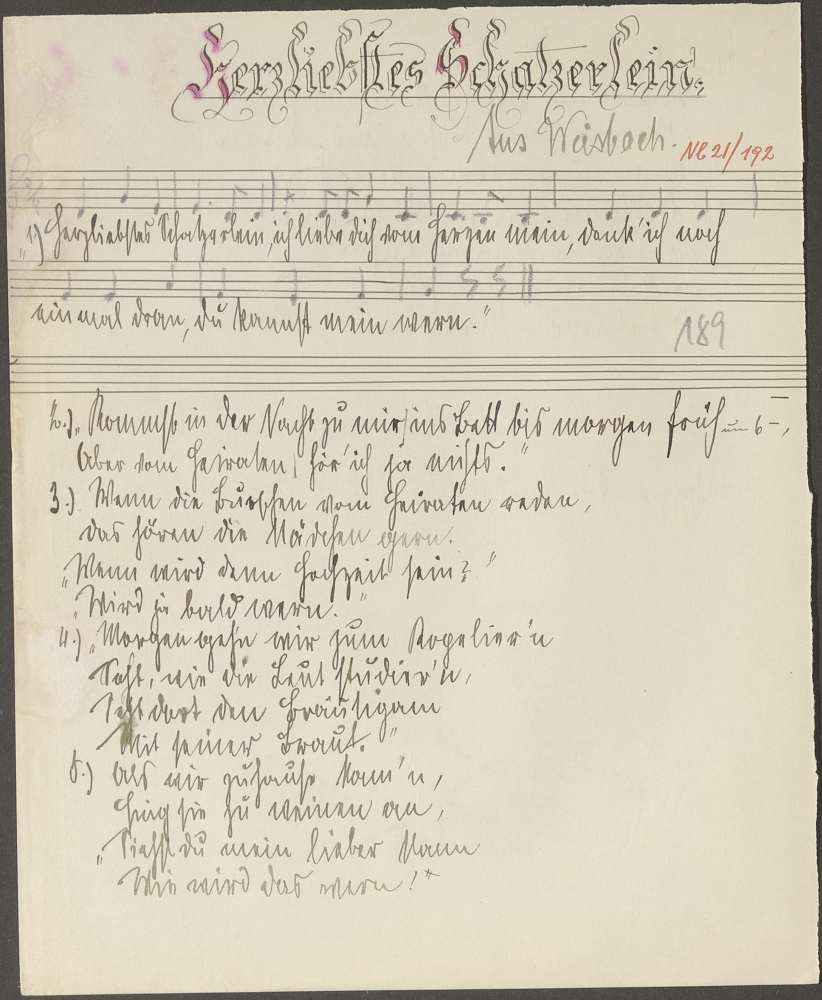 Herzliebstes Schatzerlein.
Aus Weisbach.
Nl 21/192
"1) Herzliebstes Schatzerlein, ich liebe dich vom Herzen mein, denk' ich noch
einmal dran, du kannst mein wern."
189
2.) "Kommst in der Nacht zu mir ins Bett bis morgen früh um 6 –,
Aber vom Heiraten hör' ich ja nichts."
3.) Wenn die Burschen vom Heiraten reden,
das hören die Mädchen gern.
"Wenn wird denn Hochzeit sein?"
"Wird ja bald wern."
4.) "Morgen gehn wir zum Kopelier'n
Seht, wie die Leut studier'n,
Seht dort den Bräutigam
Mit seiner Braut."
5.) Als wir zuhause kam'n,
Fing sie zu weinen an,
"Siehst du mein lieber Mann
Wie wird das wern!"